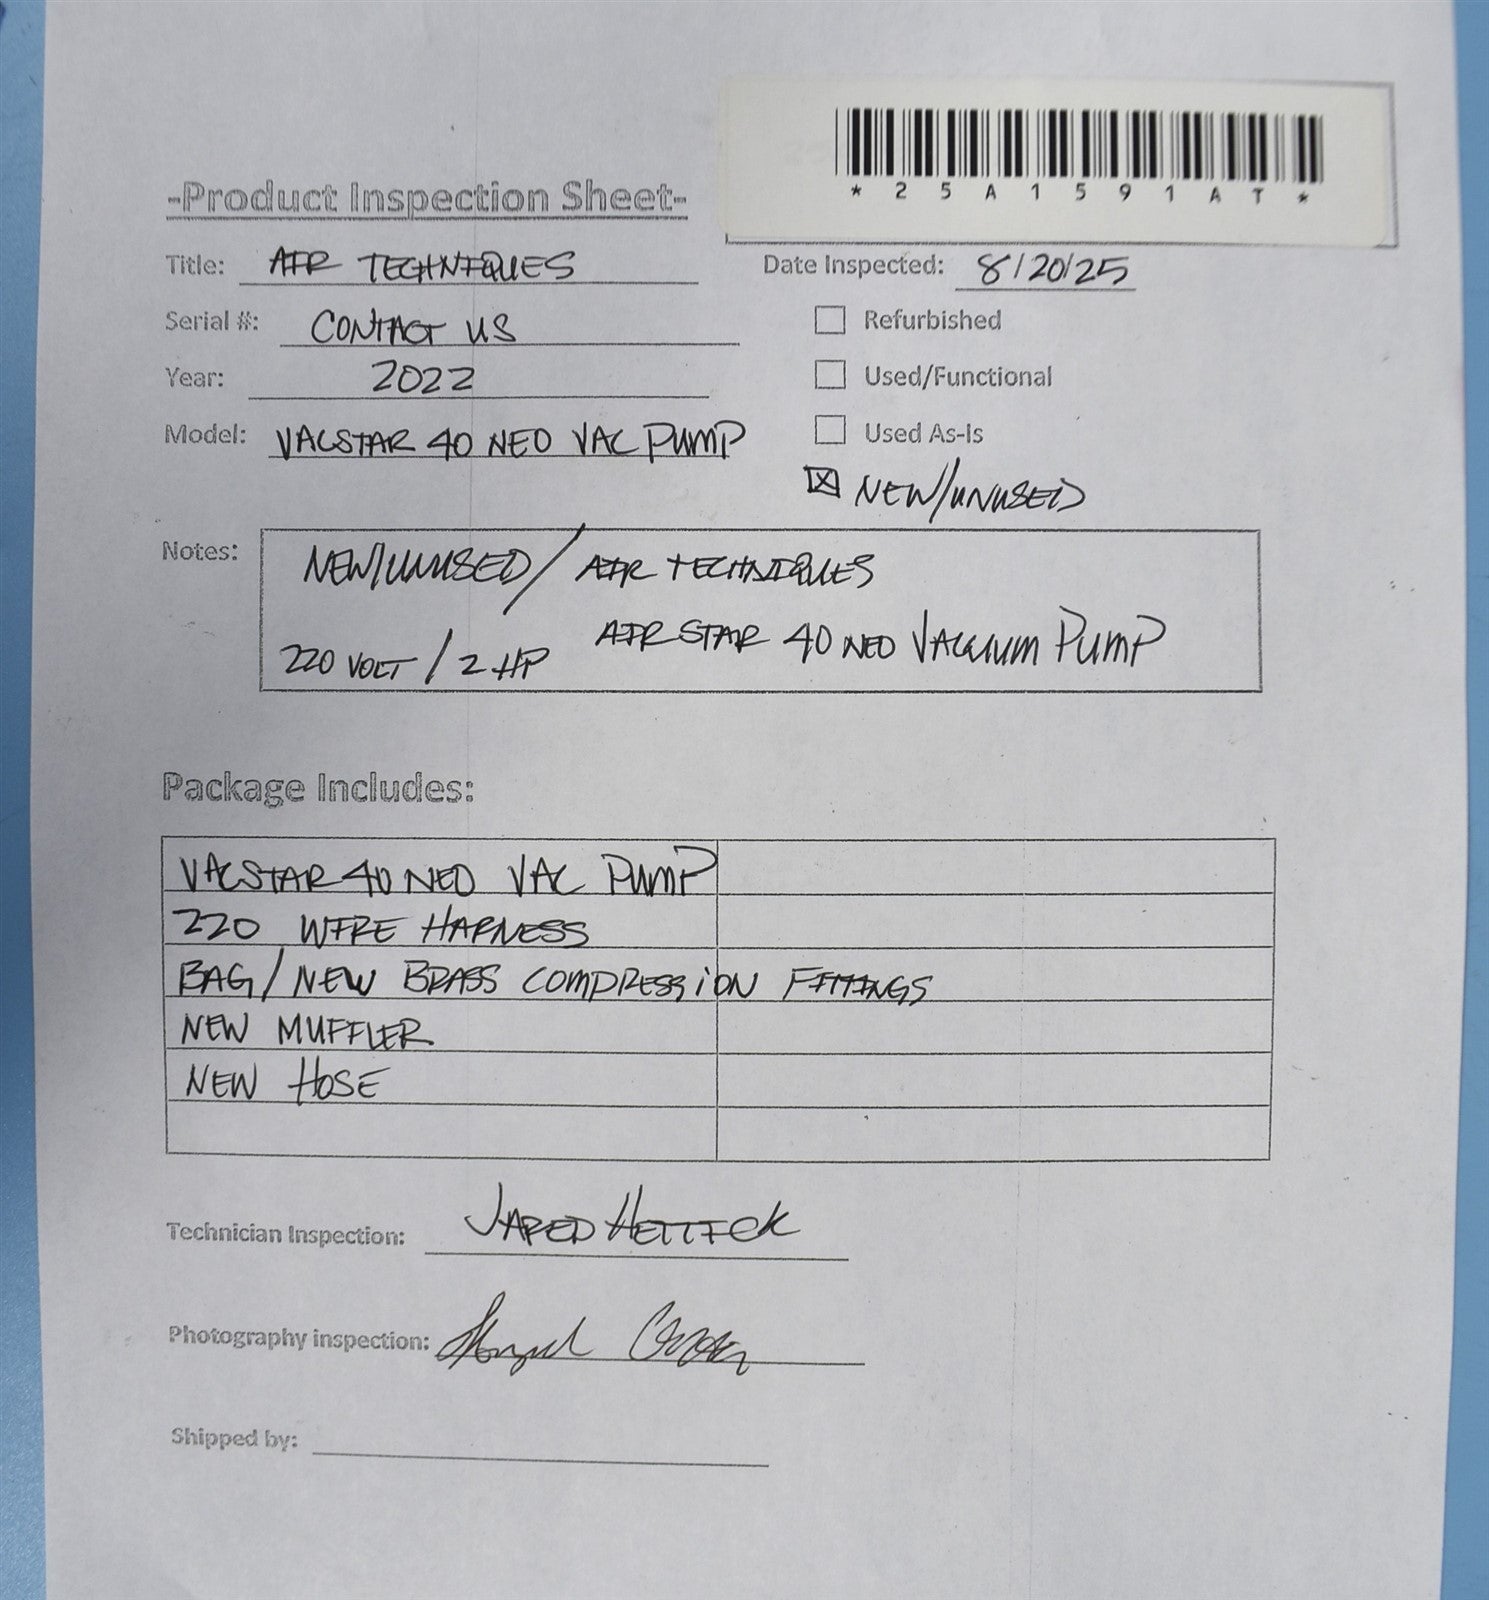 *25A1591AT*
-Product Inspection Sheet-
Title: AIR TECHNIQUES
Date Inspected: 8/20/25
Serial #: CONTACT US
Refurbished
Year: 2022
Used/Functional
Model: VACSTAR 40 NEO VAC PUMP
Used As-Is
NEW/UNUSED
Notes: NEW/UNUSED / AIR TECHNIQUES
AIR STAR 40 NEO VACUUM PUMP
220 VOLT / 2 HP
Package Includes:
VACSTAR 40 NEO VAC PUMP
220 WIRE HARNESS
BAG/NEW BRASS COMPRESSION FITTINGS
NEW MUFFLER
NEW HOSE
Technician Inspection: JARED
Photography inspection:
Shipped by: